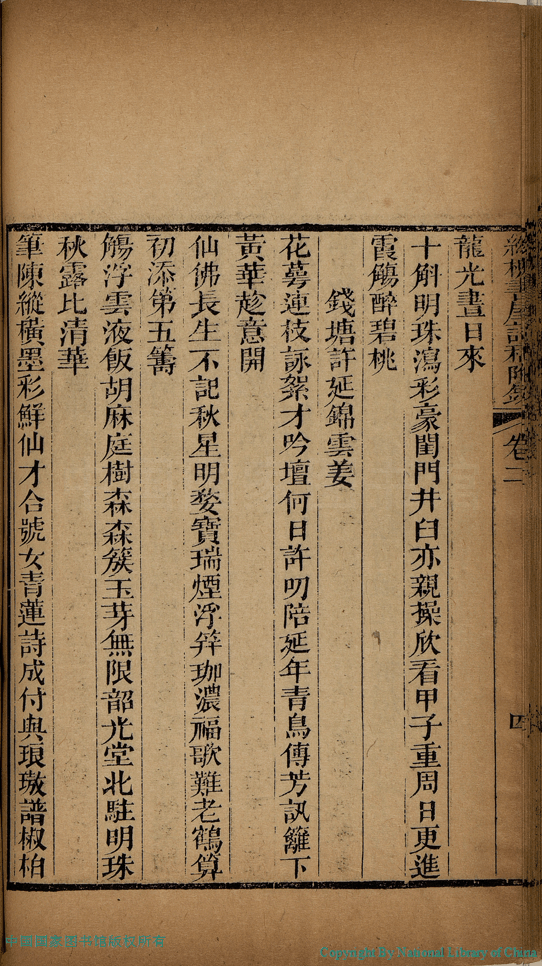 卷二
四
龍光晝日來
十斛明珠瀉彩豪閨門井臼亦親操欣看甲子重周日更進
霞觴醉碧桃
錢塘許延錦雲姜
花萼連枝詠絮才吟壇何日許叨陪延年青鳥傳芳訊籬下
黃華趁意開
仙佛長生不記秋星明婺寶瑞煙浮笄珈濃福歌難老鶴算
初添第五籌
觴浮雲液飯胡麻庭樹森森簇玉芽無限韶光堂北駐明珠
秋露比清華
筆陳縱橫墨彩鮮仙才合號女青蓮詩成付與琅璈譜椒柏
中国国家图书馆版权所有
Copyright By National Library of China